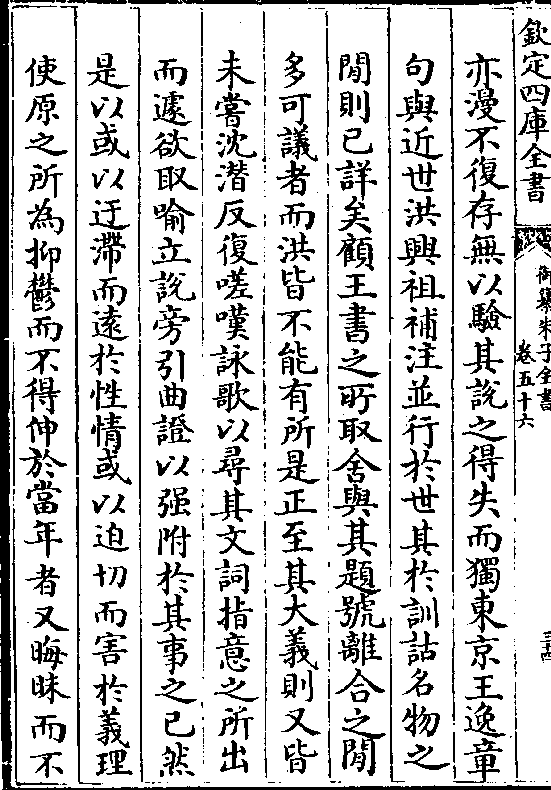 欽定四庫全書
御纂朱子全書
卷五十六
亦漫不復存無以驗其說之得失而獨東京王逸章
句與近世洪興祖補注並行於世其於訓詁名物之
間則已詳矣顧王書之所取舍與其題號離合之間
多可議者而洪皆不能有所是正至其大義則又皆
未嘗沈潛反復嗟嘆詠歌以尋其文詞指意之所出
而遽欲取喻立說旁引曲證以强附於其事之已然
是以或以迂滯而遠於性情或以迫切而害於義理
使原之所為抑鬱而不得伸於當年者又晦昧而不